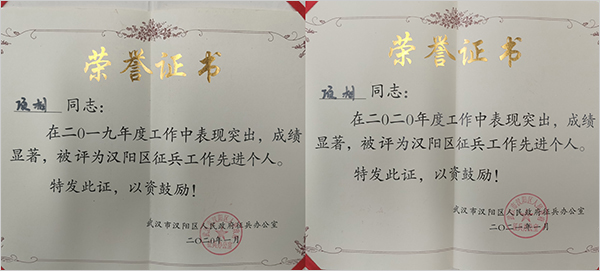 荣誉证书
同志：
在二〇一九年度工作中表现突出，成绩
显著，被评为汉阳区征兵工作先进个人。
特发此证，以资鼓励！
武汉市汉阳区人民政府征兵办公室
二〇二〇年一月
荣誉证书
同志：
在二〇二〇年度工作中表现突出，成绩
显著，被评为汉阳区征兵工作先进个人。
特发此证，以资鼓励！
武汉市汉阳区人民政府征兵办公室
二〇二一年一月